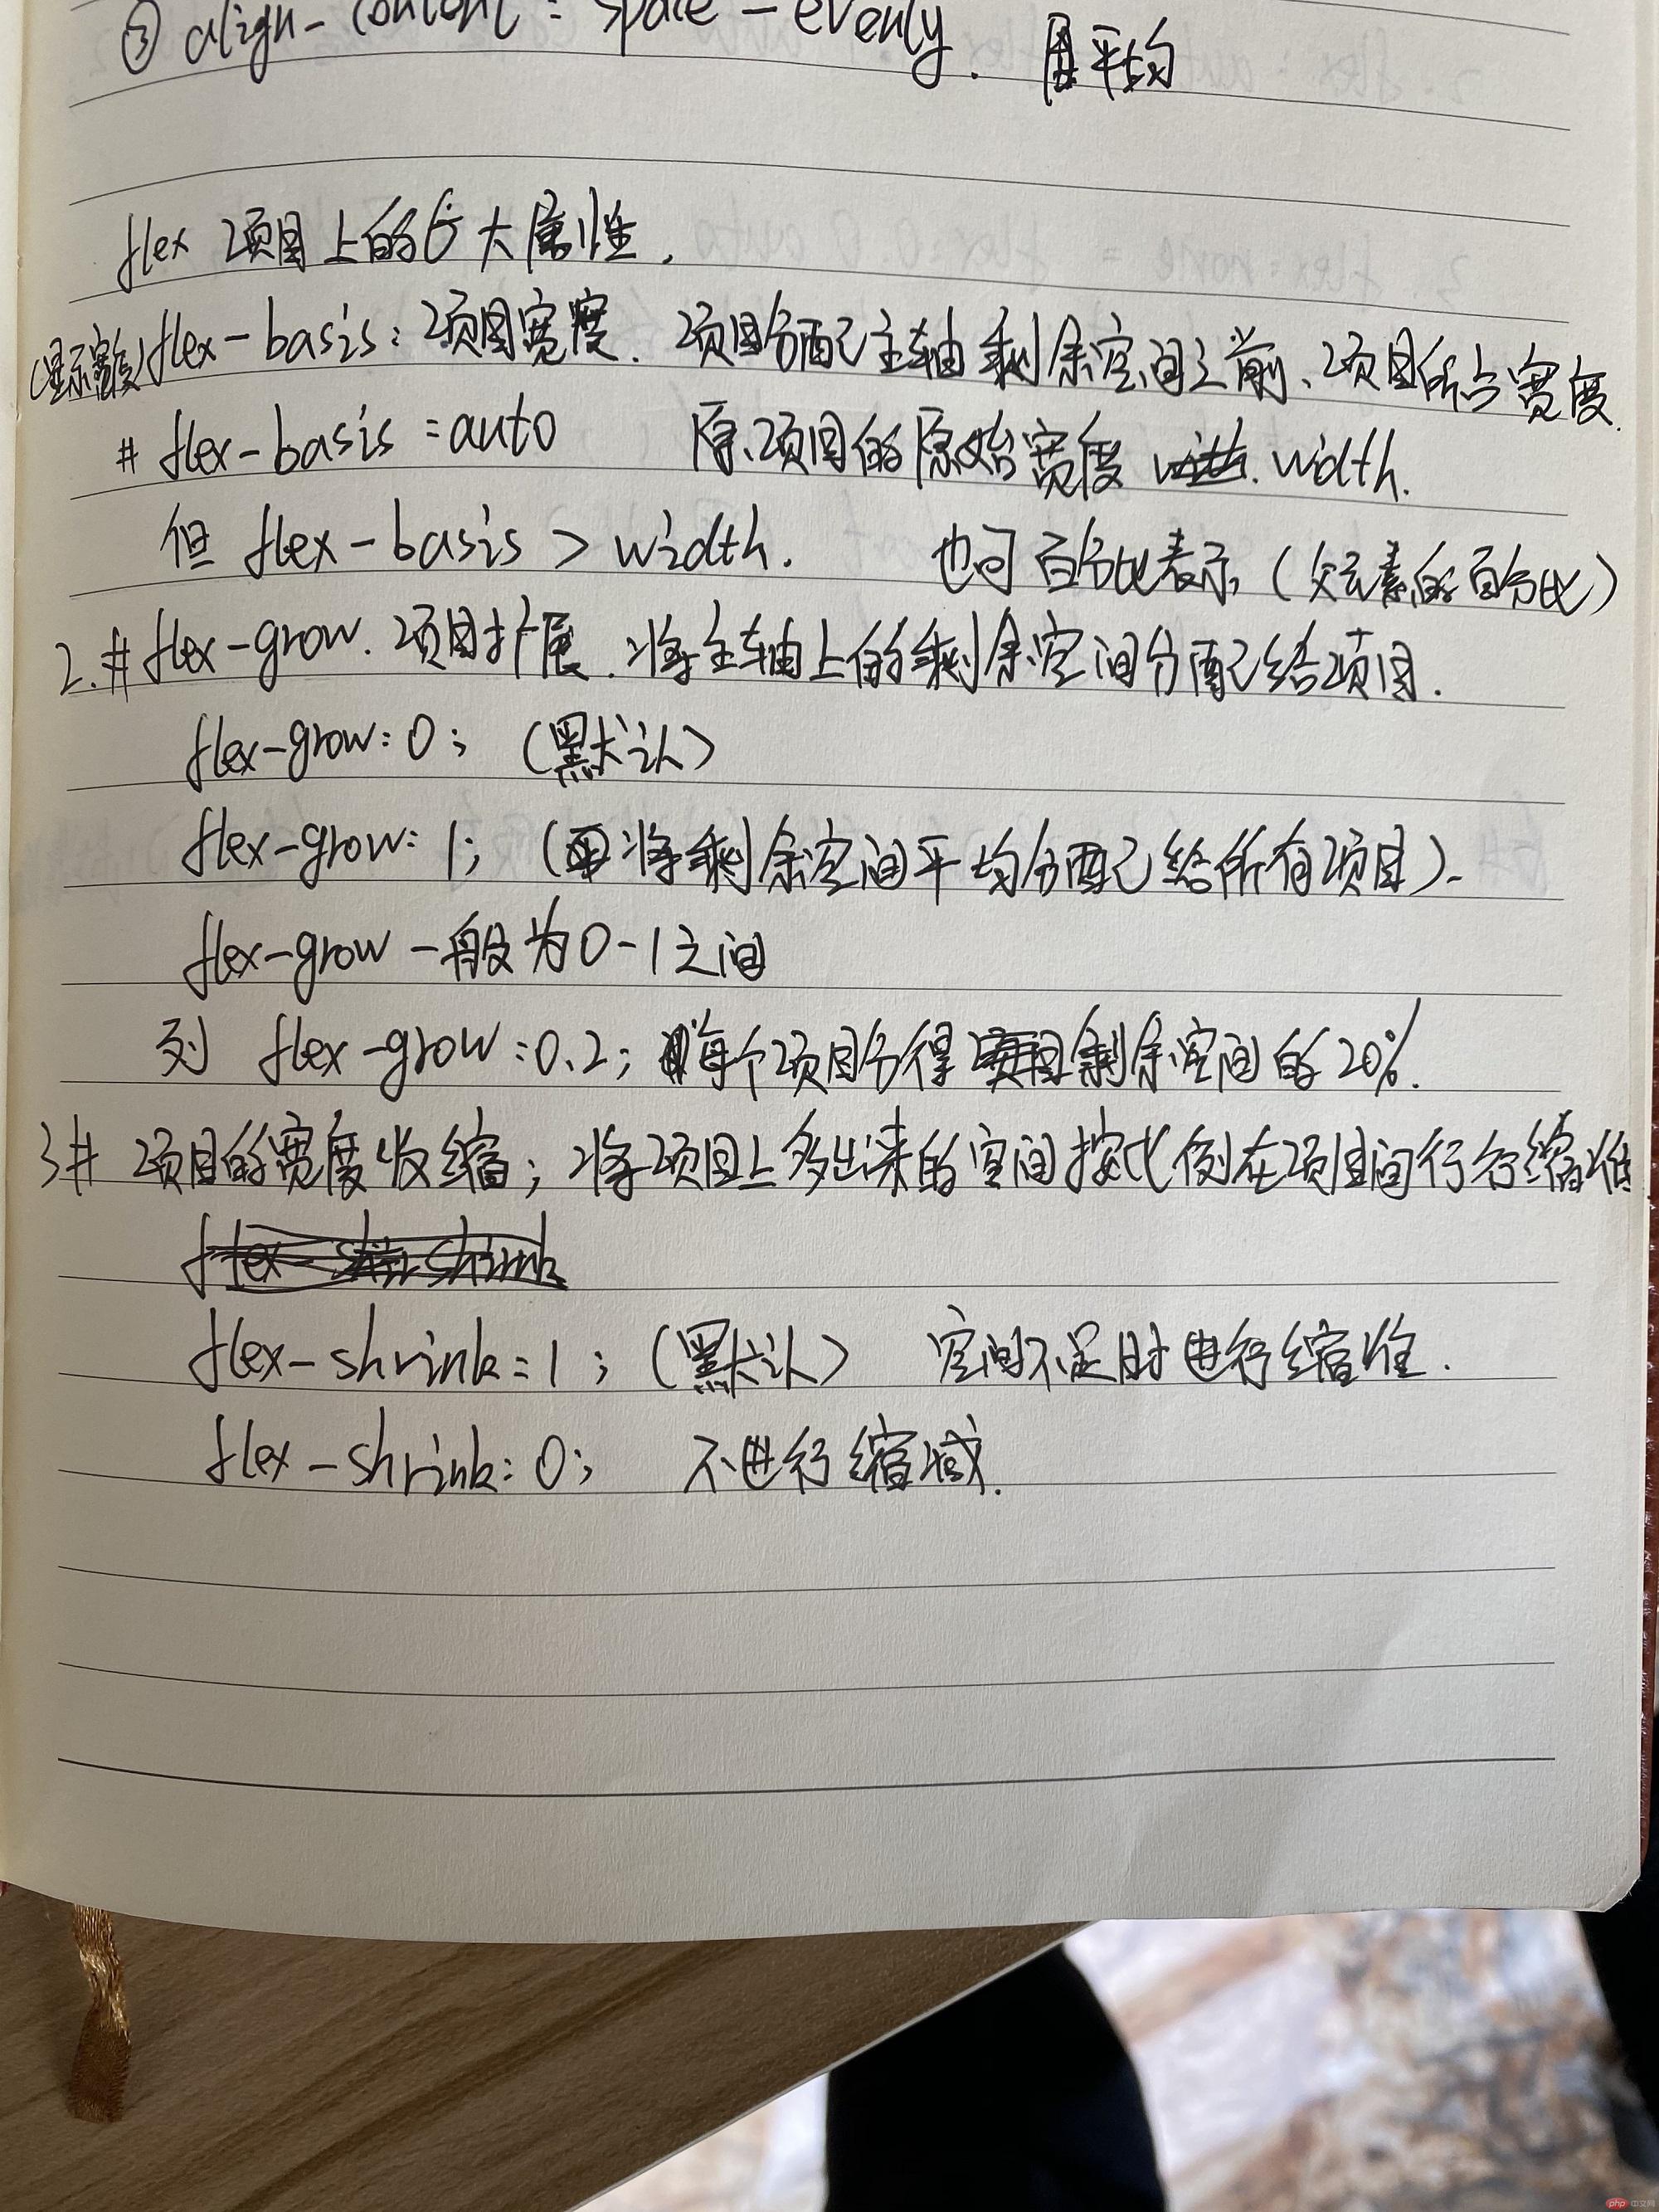 ③ align-content: space-evenly. 平均
flex 项目上的6大属性.
(显示宽度) flex-basis: 项目宽度. 项目分配主轴剩余空间之前、项目所占宽度.
# flex-basis:auto 原项目的原始宽度 width.
但 flex-basis > width. 也可百分比表示 (父元素的百分比)
2.# flex-grow. 项目扩展. 将主轴上的剩余空间分配给项目.
flex-grow:0; (默认)
flex-grow: 1; (将剩余空间平均分配给所有项目).
flex-grow 一般为0-1之间
列 flex-grow:0.2; 每个项目分得剩余空间的20%.
3# 项目的宽度收缩; 将项目上多出来的空间按比例在项目间行行缩
flex-shrink=1; (默认) 空间不足时进行缩.
flex-shrink: 0; 不进行缩减.
php 中文网